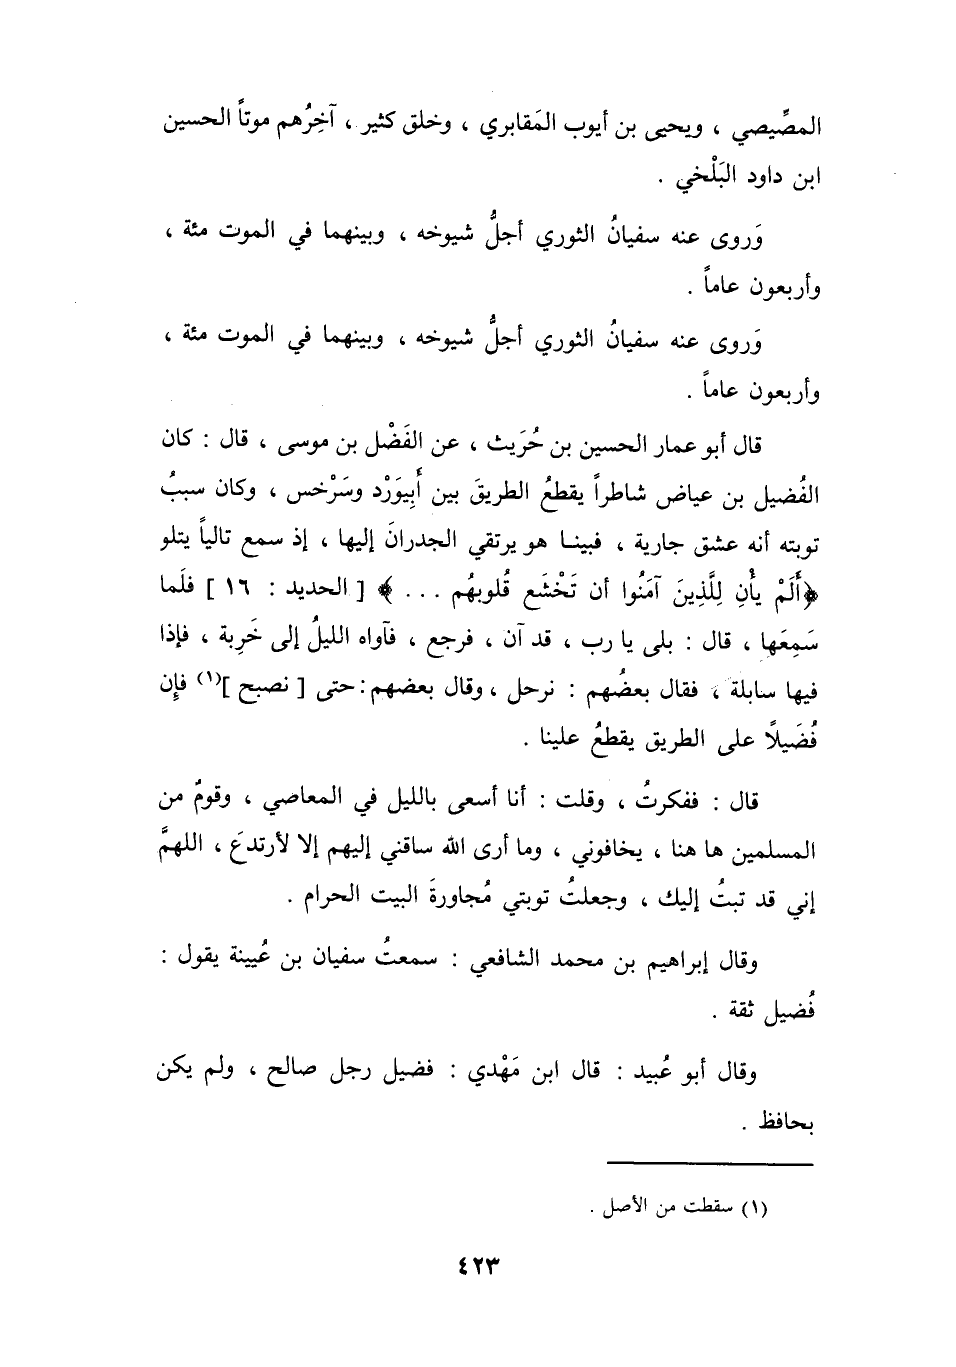 المصِّيصي ، ويحيى بن أيوب المَقابري ، وخلق كثير ، آخِرُهم موتاً الحسين
ابن داود البَلْخي .
وَروى عنه سفيانُ الثوري أجلُّ شيوخه ، وبينهما في الموت مئة ،
وأربعون عاماً .
وَروى عنه سفيانُ الثوري أجلُّ شيوخه ، وبينهما في الموت مئة ،
وأربعون عاماً .
قال أبو عمار الحسين بن حُرَيث ، عن الفَضْل بن موسى ، قال : كان
الفُضيل بن عياض شاطراً يقطعُ الطريقَ بين أَبِيوَرْد وسَرْخس ، وكان سببُ
توبته أنه عشق جارية ، فبينا هو يرتقي الجدرانَ إليها ، إذ سمع تالياً يتلو
﴿أَلَمْ يأْنِ لِلَّذِينَ آمَنُوا أن تَخْشَع قُلوبهُم ... ﴾ [ الحديد : ١٦ ] فلَما
سَمِعَها ، قال : بلى يا رب ، قد آن ، فرجع ، فآواه الليلُ إلى خَرِبة ، فإذا
فيها سابلة ، فقال بعضُهم : نرحل ، وقال بعضهم : حتى [ نصبح ](١) فإن
فُضَيلاً على الطريق يقطعُ علينا .
قال : ففكرتُ ، وقلت : أنا أسعى بالليل في المعاصي ، وقومٌ من
المسلمين ها هنا ، يخافوني ، وما أرى الله ساقني إليهم إلا لأرتدعَ ، اللهمَّ
إني قد تبتُ إليك ، وجعلتُ توبتي مُجاورةَ البيت الحرام .
وقال إبراهيم بن محمد الشافعي : سمعتُ سفيان بن عُيينة يقول :
فُضيل ثقة .
وقال أبو عُبيد : قال ابن مَهْدي : فضيل رجل صالح ، ولم يكن
بحافظ .
(١) سقطت من الأصل .
٤٢٣